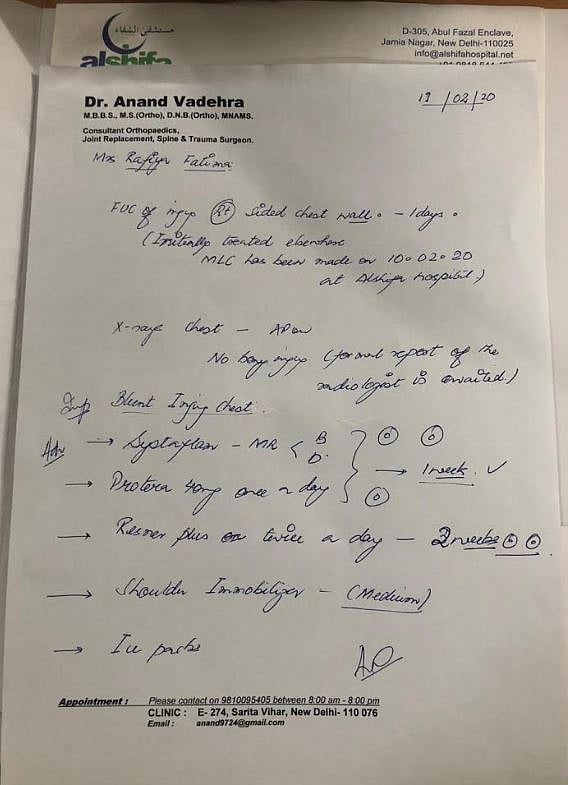 مستشفى الشفاء
alshifa
D-305, Abul Fazal Enclave,
Jamia Nagar, New Delhi-110025
info@alshifahospital.net
Dr. Anand Vadehra
M.B.B.S., M.S.(Ortho), D.N.B.(Ortho), MNAMS.
Consultant Orthopaedics,
Joint Replacement, Spine & Trauma Surgeon.
/02/20
Mrs Rafiya Fatima
FUC of injury Rt sided chest wall. - 1 days.
(Initially treated elsewhere
MLC has been made on 10.02.20
at Alshifa Hospital)
X-rays Chest -
No bony injury (formal report of the
radiologist is awaited)
Imp Blunt Injury Chest.
Adv → - MR
→ 40mg once a day → 1 week. ✓
→ plus twice a day - 2 weeks
→ Shoulder Immobilizer - (Medium)
→ Ice packs
Appointment : Please contact on 9810095405 between 8:00 am - 8:00 pm
CLINIC : E- 274, Sarita Vihar, New Delhi- 110 076
Email : anand9724@gmail.com